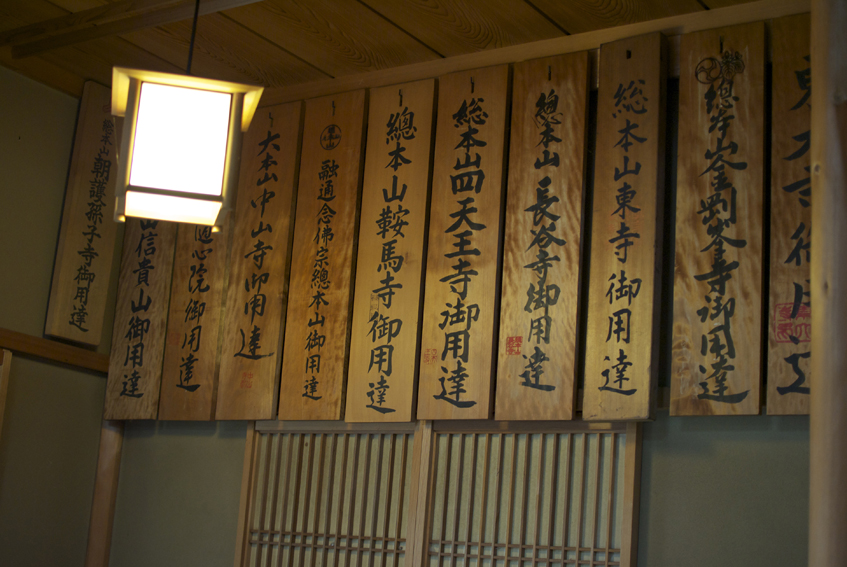 東大寺御用達
總本山金剛峯寺御用達
総本山東寺御用達
總本山長谷寺御用達
総本山四天王寺御用達
總本山鞍馬寺御用達
融通念佛宗總本山御用達
大本山中山寺御用達
随心院御用達
山信貴山御用達
総本山朝護孫子寺御用達